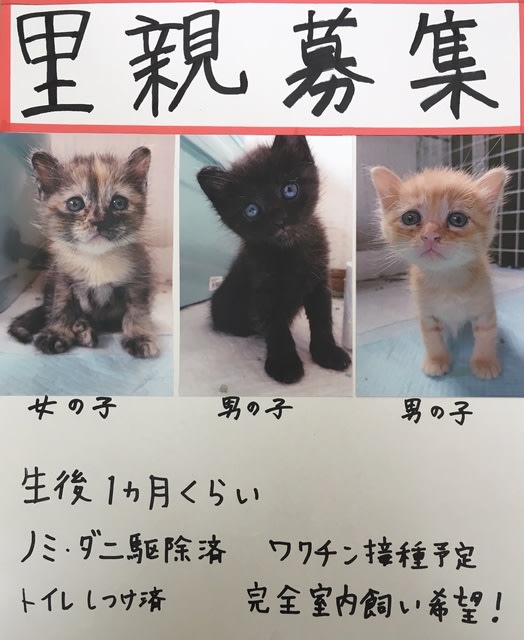 里親募集
女の子 男の子 男の子
生後1カ月くらい
ノミ・ダニ駆除済 ワクチン接種予定
トイレしつけ済 完全室内飼い希望!